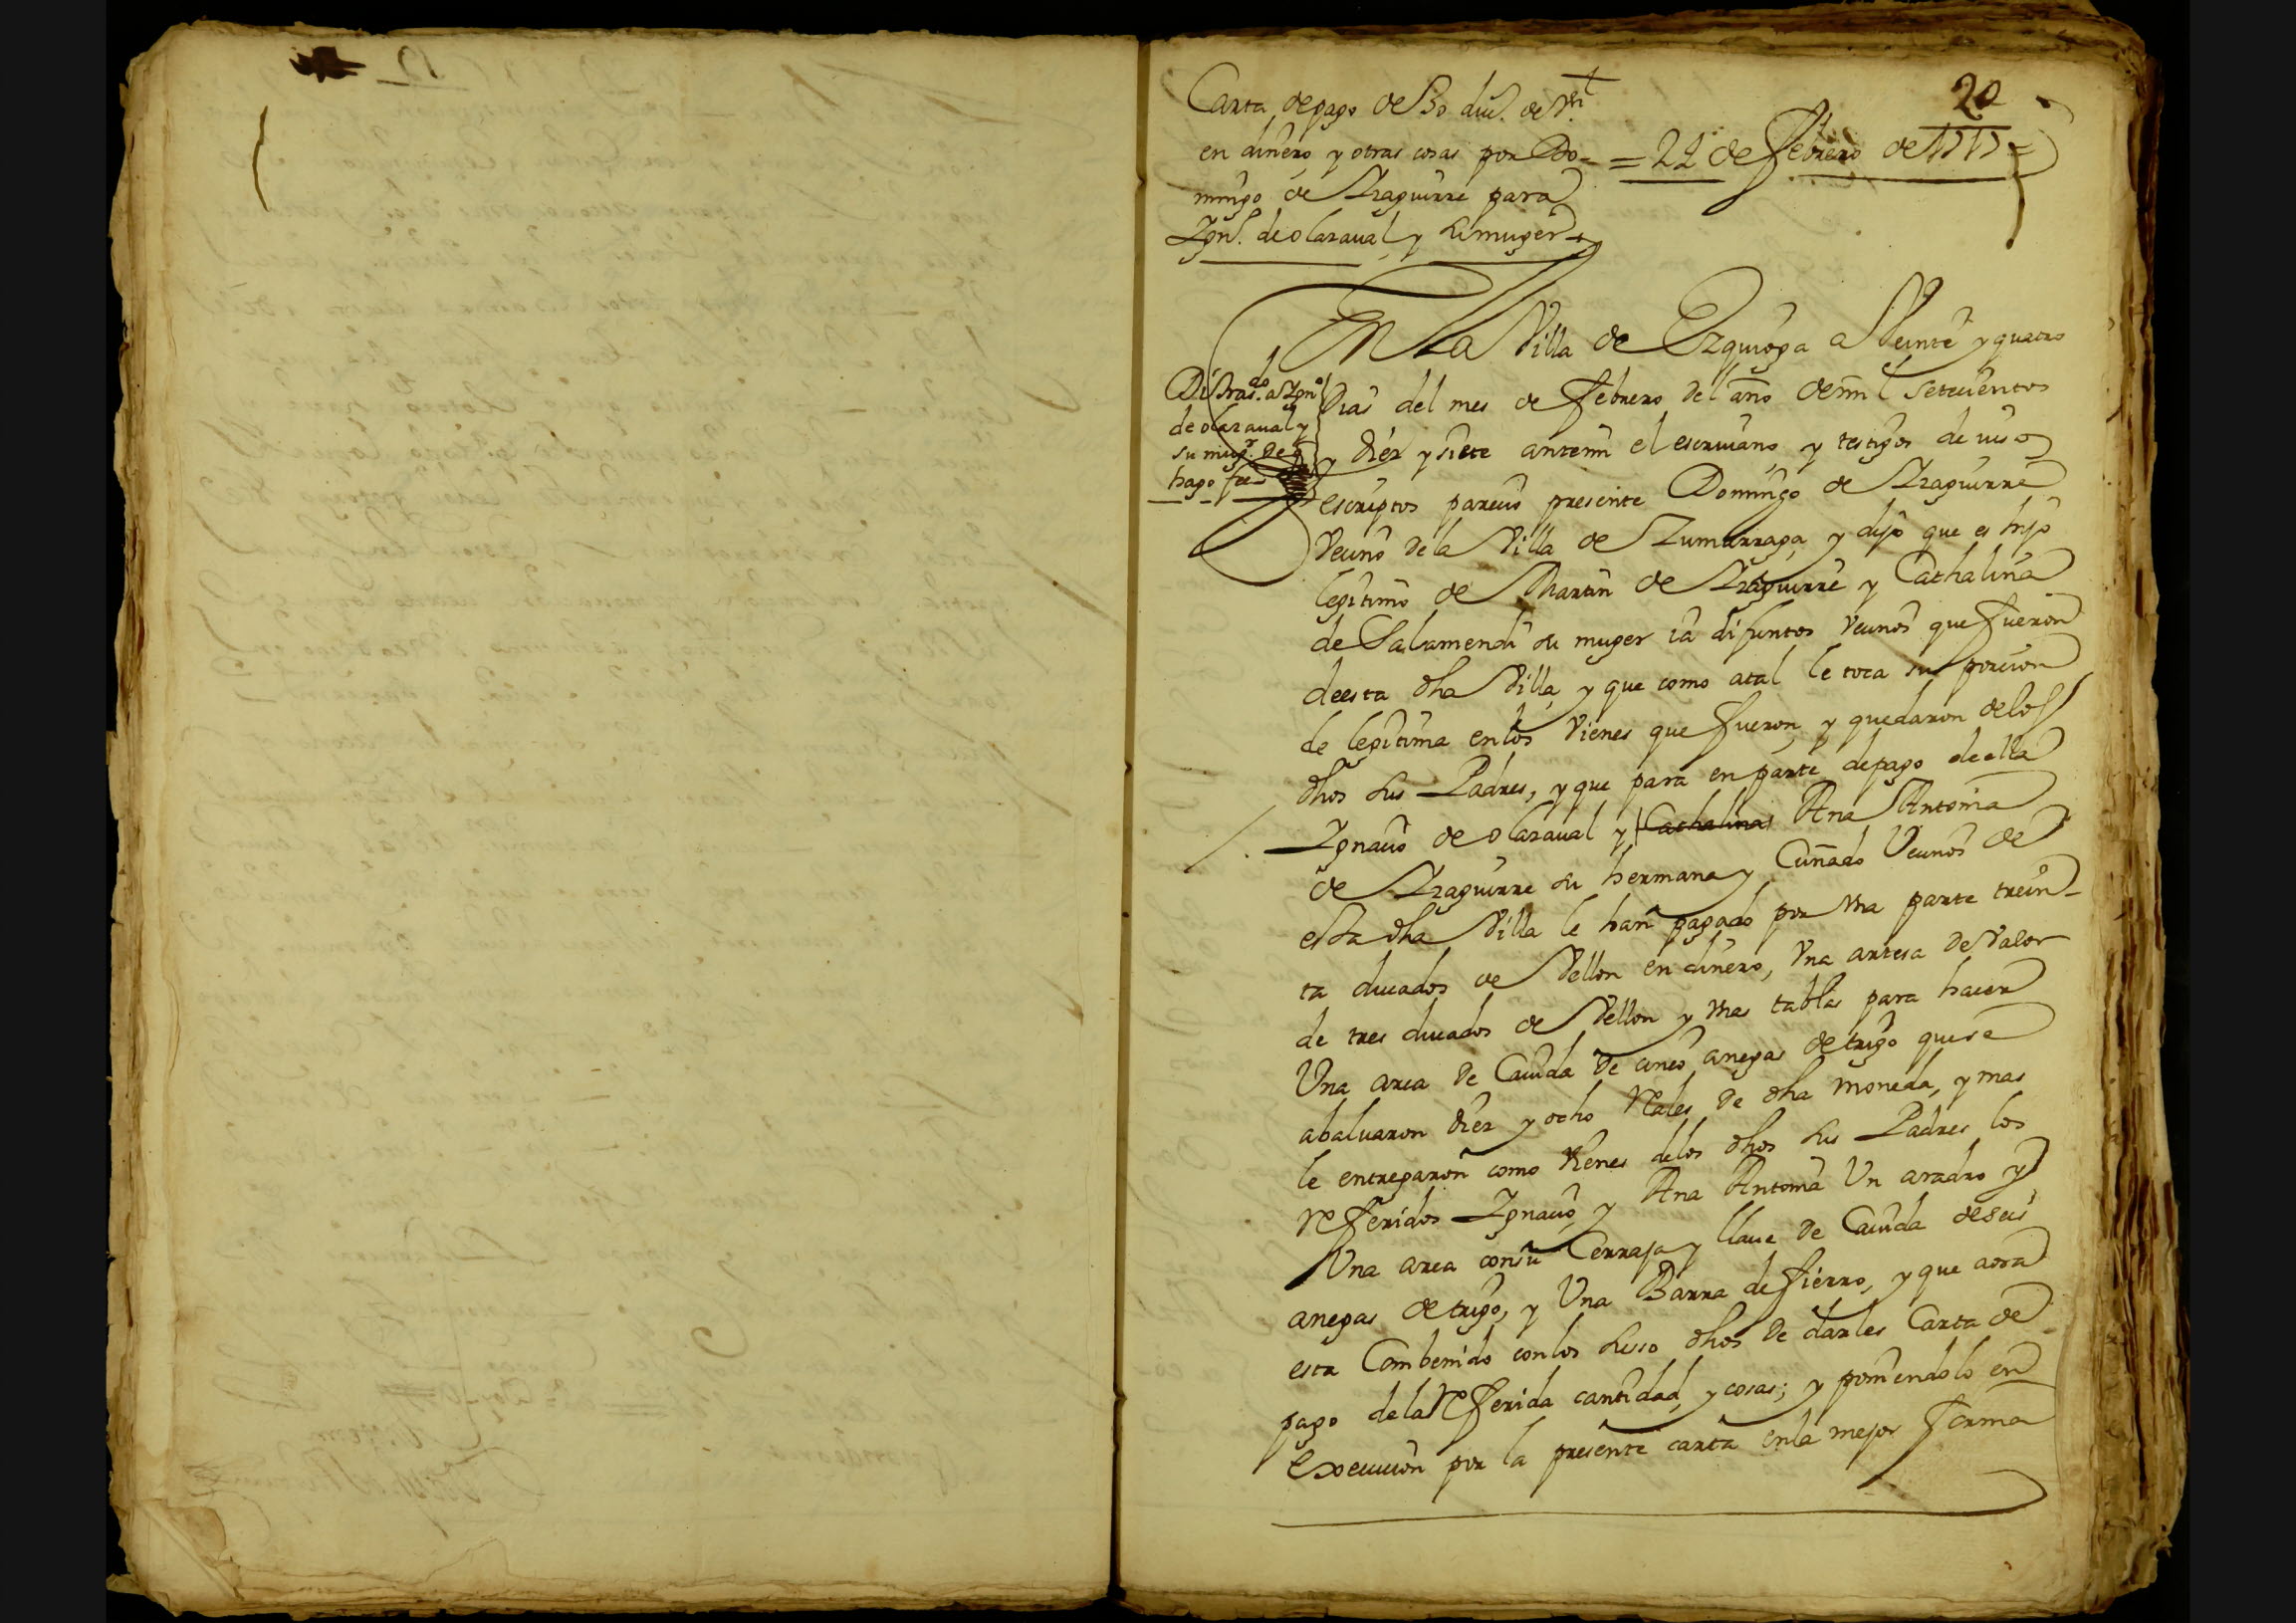 20
Carta de pago de 30 duc.s de Vn.
en dinero y otras cosas por Do-
mingo de Yzaguirre para
Ygn.o de olazaual y su muger
= 24 de febrero de 1717 =
En la Villa de Ezquioga a Veinte y quatro
Di tras.do a Ygn.o
de olazaual y
su mug.r de q
hago fee
dias del mes de febrero del año de mil setecientos
y diez y siete ante mi el escriuano y testigos de iuso
escriptos pareció presente Domingo de Yzaguirre
Vecino de la Villa de Zumarraga, y dijo que es hijo
legitimo de Martin de Yzaguirre y Cathalina
de Salamendi su muger ia difuntos Vecinos que fueron
de esta dha Villa, y que como a tal le toca su porcion
de legitima en los Vienes que fueron, y quedaron de los
dhos sus Padres, y que para en parte de pago de ella
Ygnacio de olazaual y Cathalina Ana Antonia
de Yzaguirre su hermana y Cuñado Vecinos de
esta dha Villa le han pagado por Vna parte trein-
ta ducados de Vellon en dinero, Vna artesa de Valor
de tres ducados de Vellon y Vnas tablas para hacer
Vna arca de Cauida de cinco anegas de trigo que se
abaluaron diez y ocho Reales de dha moneda, y mas
le entregaron como Vienes de los dhos sus Padres los
referidos Ygnacio, y Ana Antonia Vn aradro y
Vna arca con su Cerraja y llaue de Cauida de seis
anegas de trigo, y Vna Barra de fierro, y que aora
esta Combenido con los suso dhos de darles Carta de
pago de la referida cantidad, y cosas; y poniendolo en
execucion por la presente carta en la mejor forma